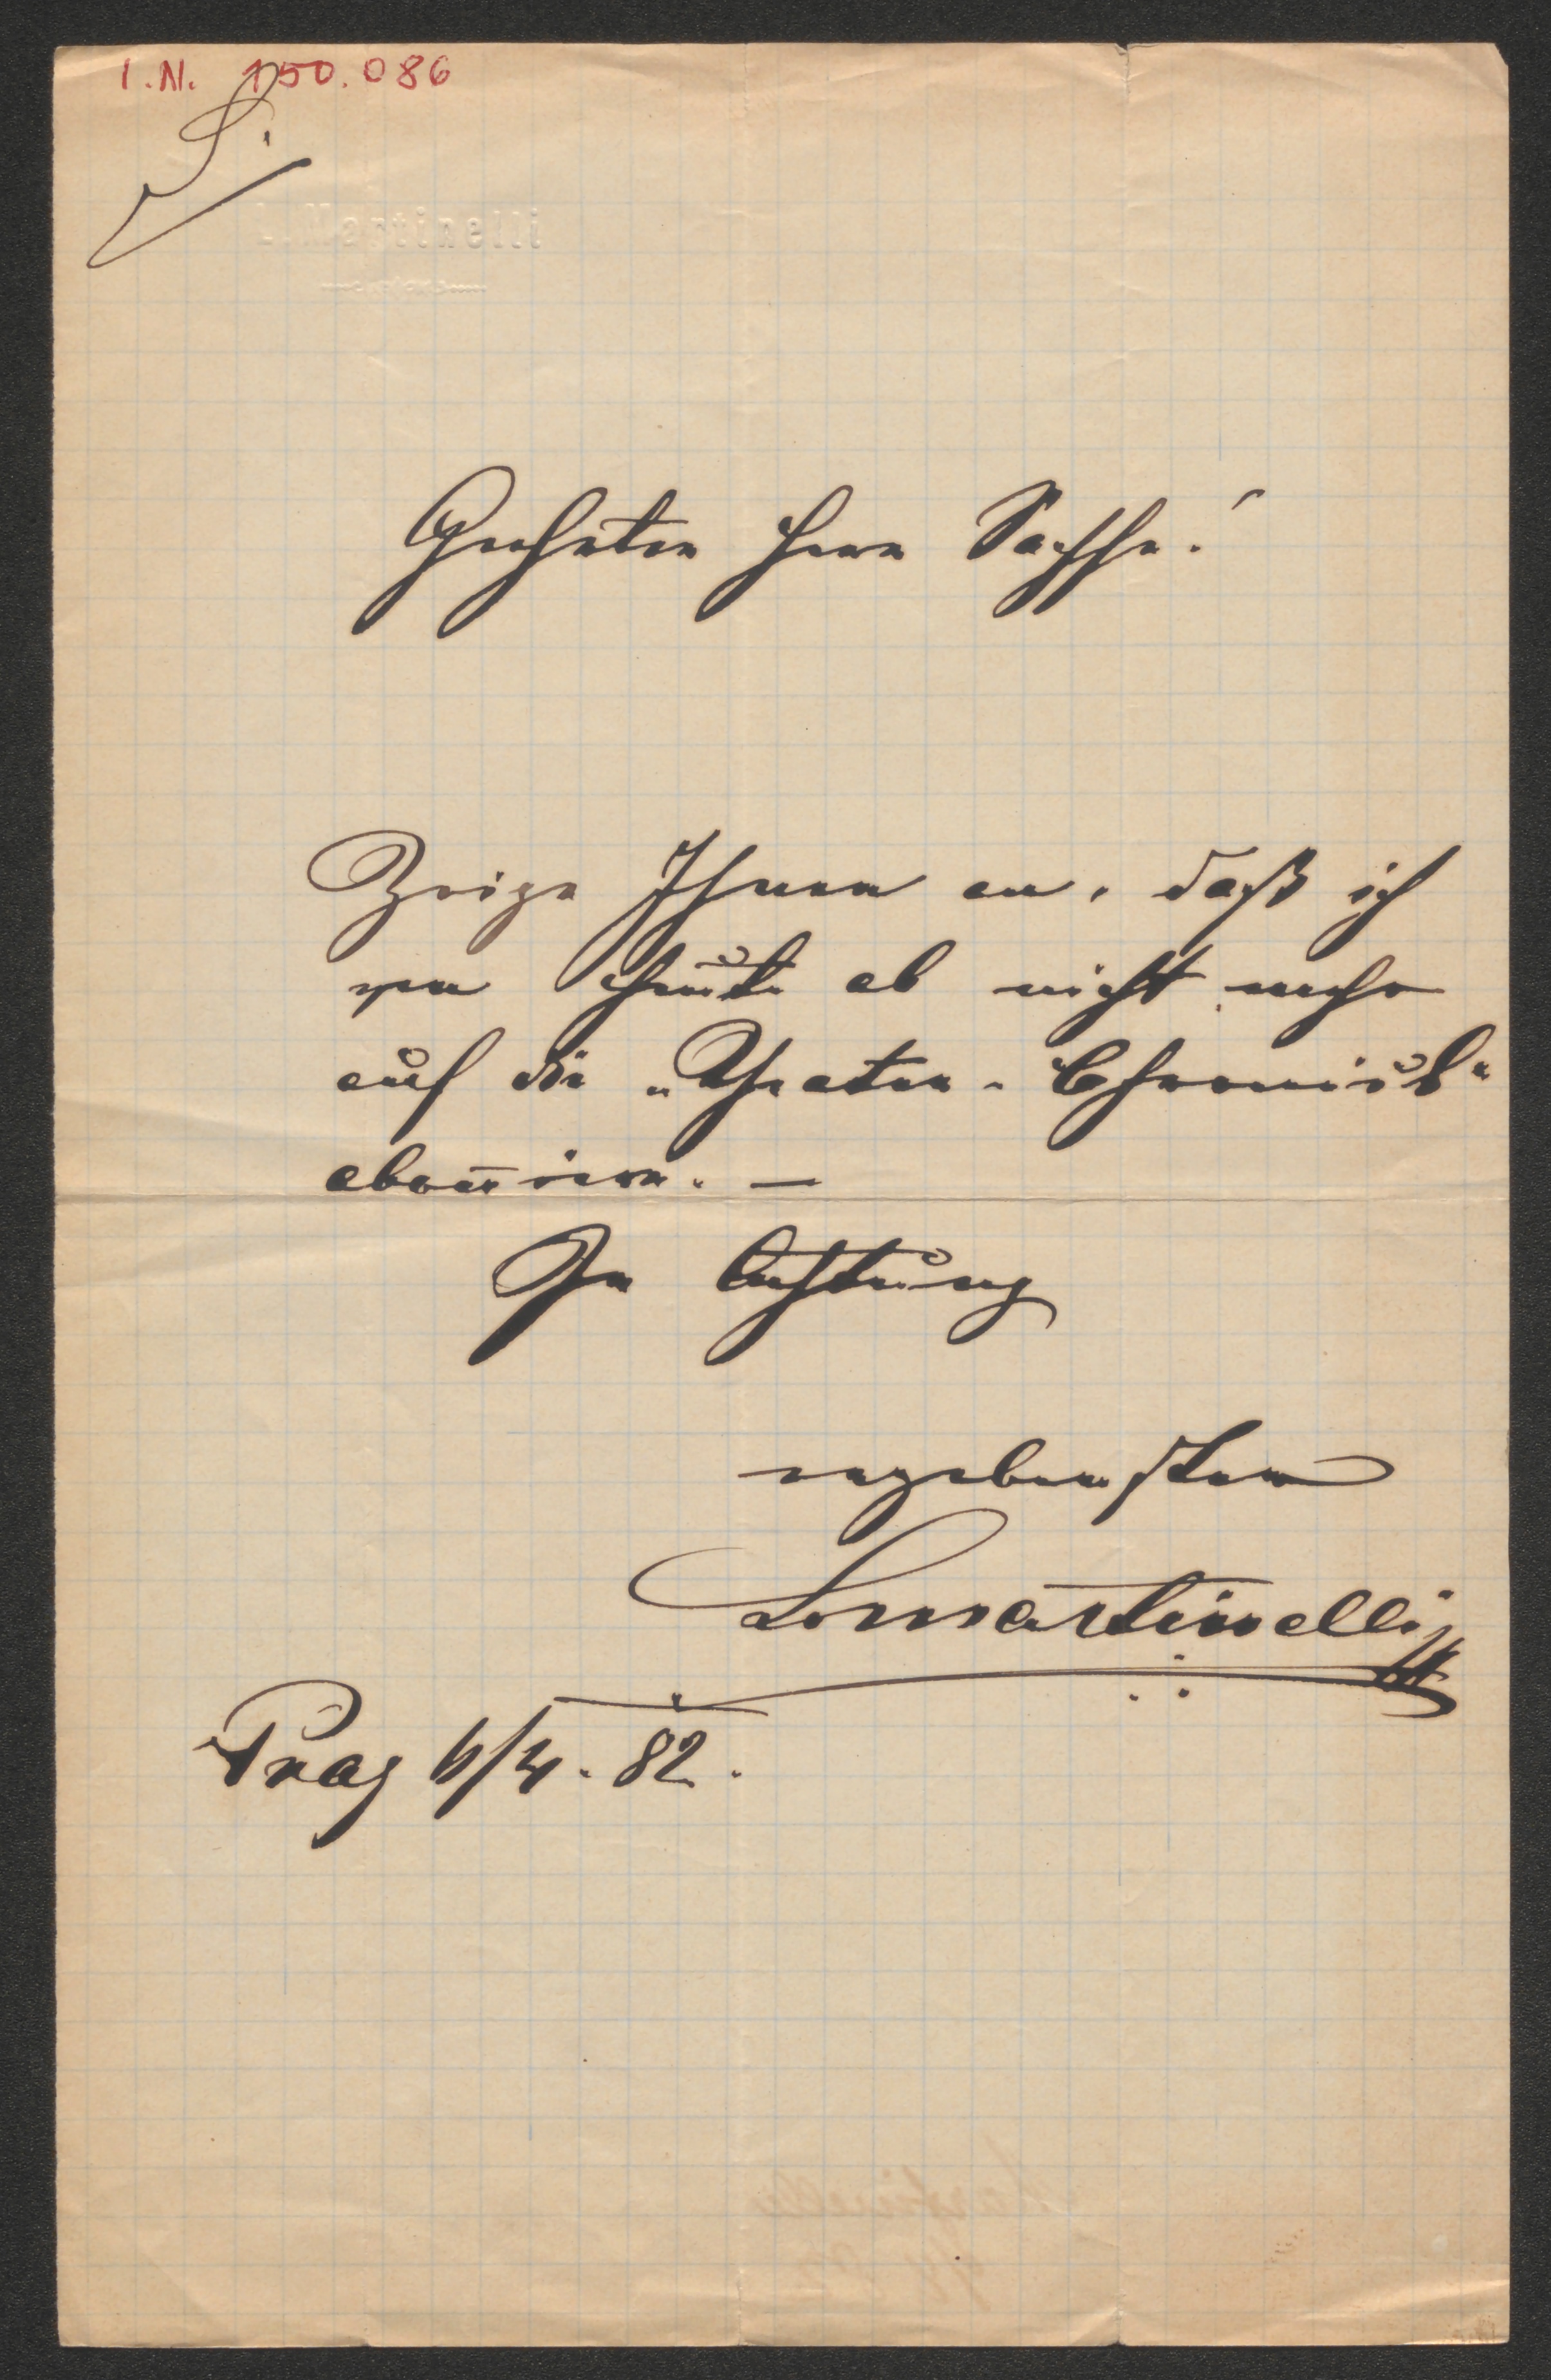 I.N. 150.086
L. Martinelli
Geehrter Herr Sachse!
Zeige Ihnen an, daß ich
von heute ab nicht mehr
auf die „Theater-Chronik“
abonnire. —
In Achtung
ergebenster
L. Martinelli
Prag 6/4. 82.